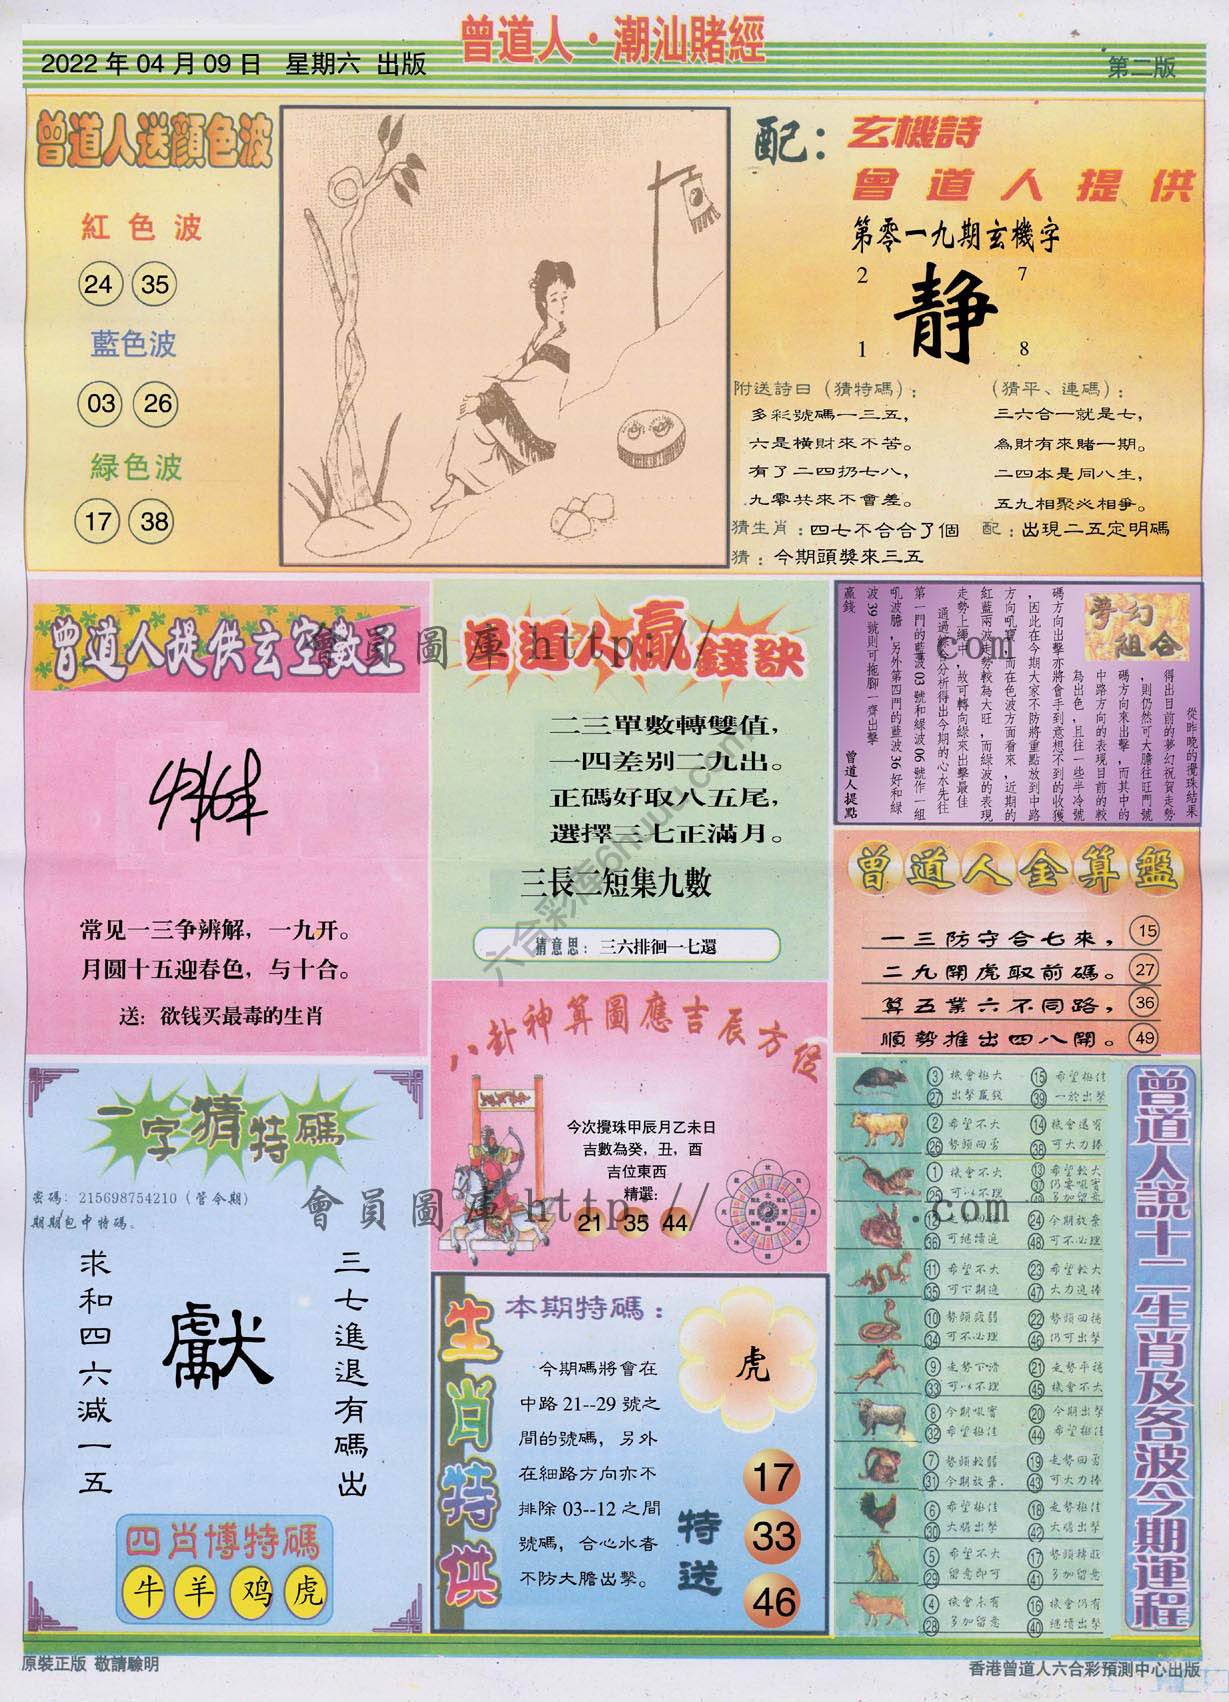 曾道人·潮汕賭經
2022 年 04 月 09 日 星期六 出版
第二版
曾道人送顔色波
紅色波
24 35
藍色波
03 26
緑色波
17 38
配：玄機詩
曾道人提供
第零一九期玄機字
2 7
靜
1 8
附送詩曰（猜特碼）：
多彩號碼一三五，
六是橫財來不苦。
有了二四扔七八，
九零共來不會差。
（猜平、連碼）：
三六合一就是七，
為財有來賭一期。
二四本是同八生，
五九相聚必相爭。
猜生肖：四七不合合了個
配：出現二五定明碼
猜：今期頭獎來三五
曾道人提供玄空數王
常见一三争辨解，一九开。
月圆十五迎春色，与十合。
送：欲钱买最毒的生肖
曾道人贏錢訣
二三單數轉雙值，
一四差别二九出。
正碼好取八五尾，
選擇三七正滿月。
三長二短集九數
猜意思：三六排徊一七還
夢幻
組合
從昨晚的攪珠結果
得出目前的夢幻祝賀走勢
，則仍然可大膽往旺門號
碼方向來出擊，而其中的
中路方向的表現目前的較
為出色，且往一些半冷號
碼方向出擊亦將會手到意想不到的收獲
，因此在今期大家不防將重點放到中路
方向吼寶，而在色波方面看來，近期的
紅藍兩波走勢較為大旺，而綠波的表現
走勢上繩中，故可轉向綠來出擊最佳
通過綜合分析得出今期的心水先往
第一門的藍波 03 號和綠波 06 號作一組
吼波膽，另外第四門的藍波 36 好和綠
波 39 號則可拖腳一齊出擊
贏錢
曾道人提點
曾道人金算盤
一三防守合七來， 15
二九開虎取前碼。 27
算五業六不同路， 36
順勢推出四八開。 49
八卦神算圖應吉辰方位
今次攪珠甲辰月乙未日
吉數為癸，丑，酉
吉位東西
精選：
21 35 44
一字猜特碼
密碼：215698754210（管今期）
期期包中特碼。
三七進退有碼出
獻
求和四六減一五
四肖博特碼
牛 羊 鸡 虎
生肖特供
本期特碼：
虎
今期碼將會在
中路 21--29 號之
間的號碼，另外
在細路方向亦不
排除 03--12 之間
號碼，合心水者
不防大膽出擊。
特送
17
33
46
曾道人説十二生肖及各波今期運程
3 機會極大 15 希望極佳
27 出擊贏錢 39 一於出擊
2 希望不大 14 機會還有
26 勢頭回勇 38 可大力捧
1 機會不大 13 希望較大
可以不理
24 今期放棄
36 可繼續追 48 可不必理
11 希望不大 23 希望較大
35 可下期追 47 大力追捧
10 勢頭疲弱 22 勢頭回揚
34 可不必理 46 仍可出擊
9 走勢下滑 21 走勢平穩
33 可以不理 45 機會不大
8 今期吸實 20 今期出擊
32 希望極佳 44 希望極佳
7 勢頭較弱 19 走勢回勇
31 今期放棄. 43 可大力捧
6 希望極佳 18 走勢極佳
30 大膽出擊 42 大膽出擊
5 希望不大 17 勢頭轉旺
29 留意即可 41 多加留意
4 機會未有 16 機會仍有
28 多加留意 40 繼續出擊
會員圖庫 http:// .com
會員圖庫 http:// .com
原裝正版 敬請驗明
香港曾道人六合彩預測中心出版